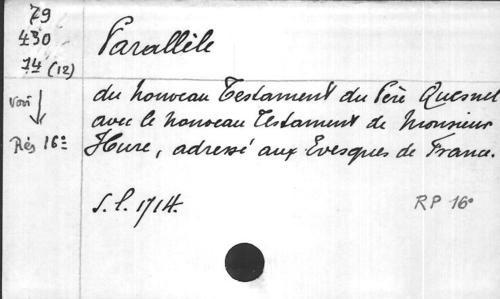 79
430
14 (12)
voir
Rés 16=
Parallèle
du nouveau Testament du Père Quesnel
avec le nouveau Testament de Monsieur
Hure, adressé aux Evesques de France.
S. l. 1714.
RP 16°